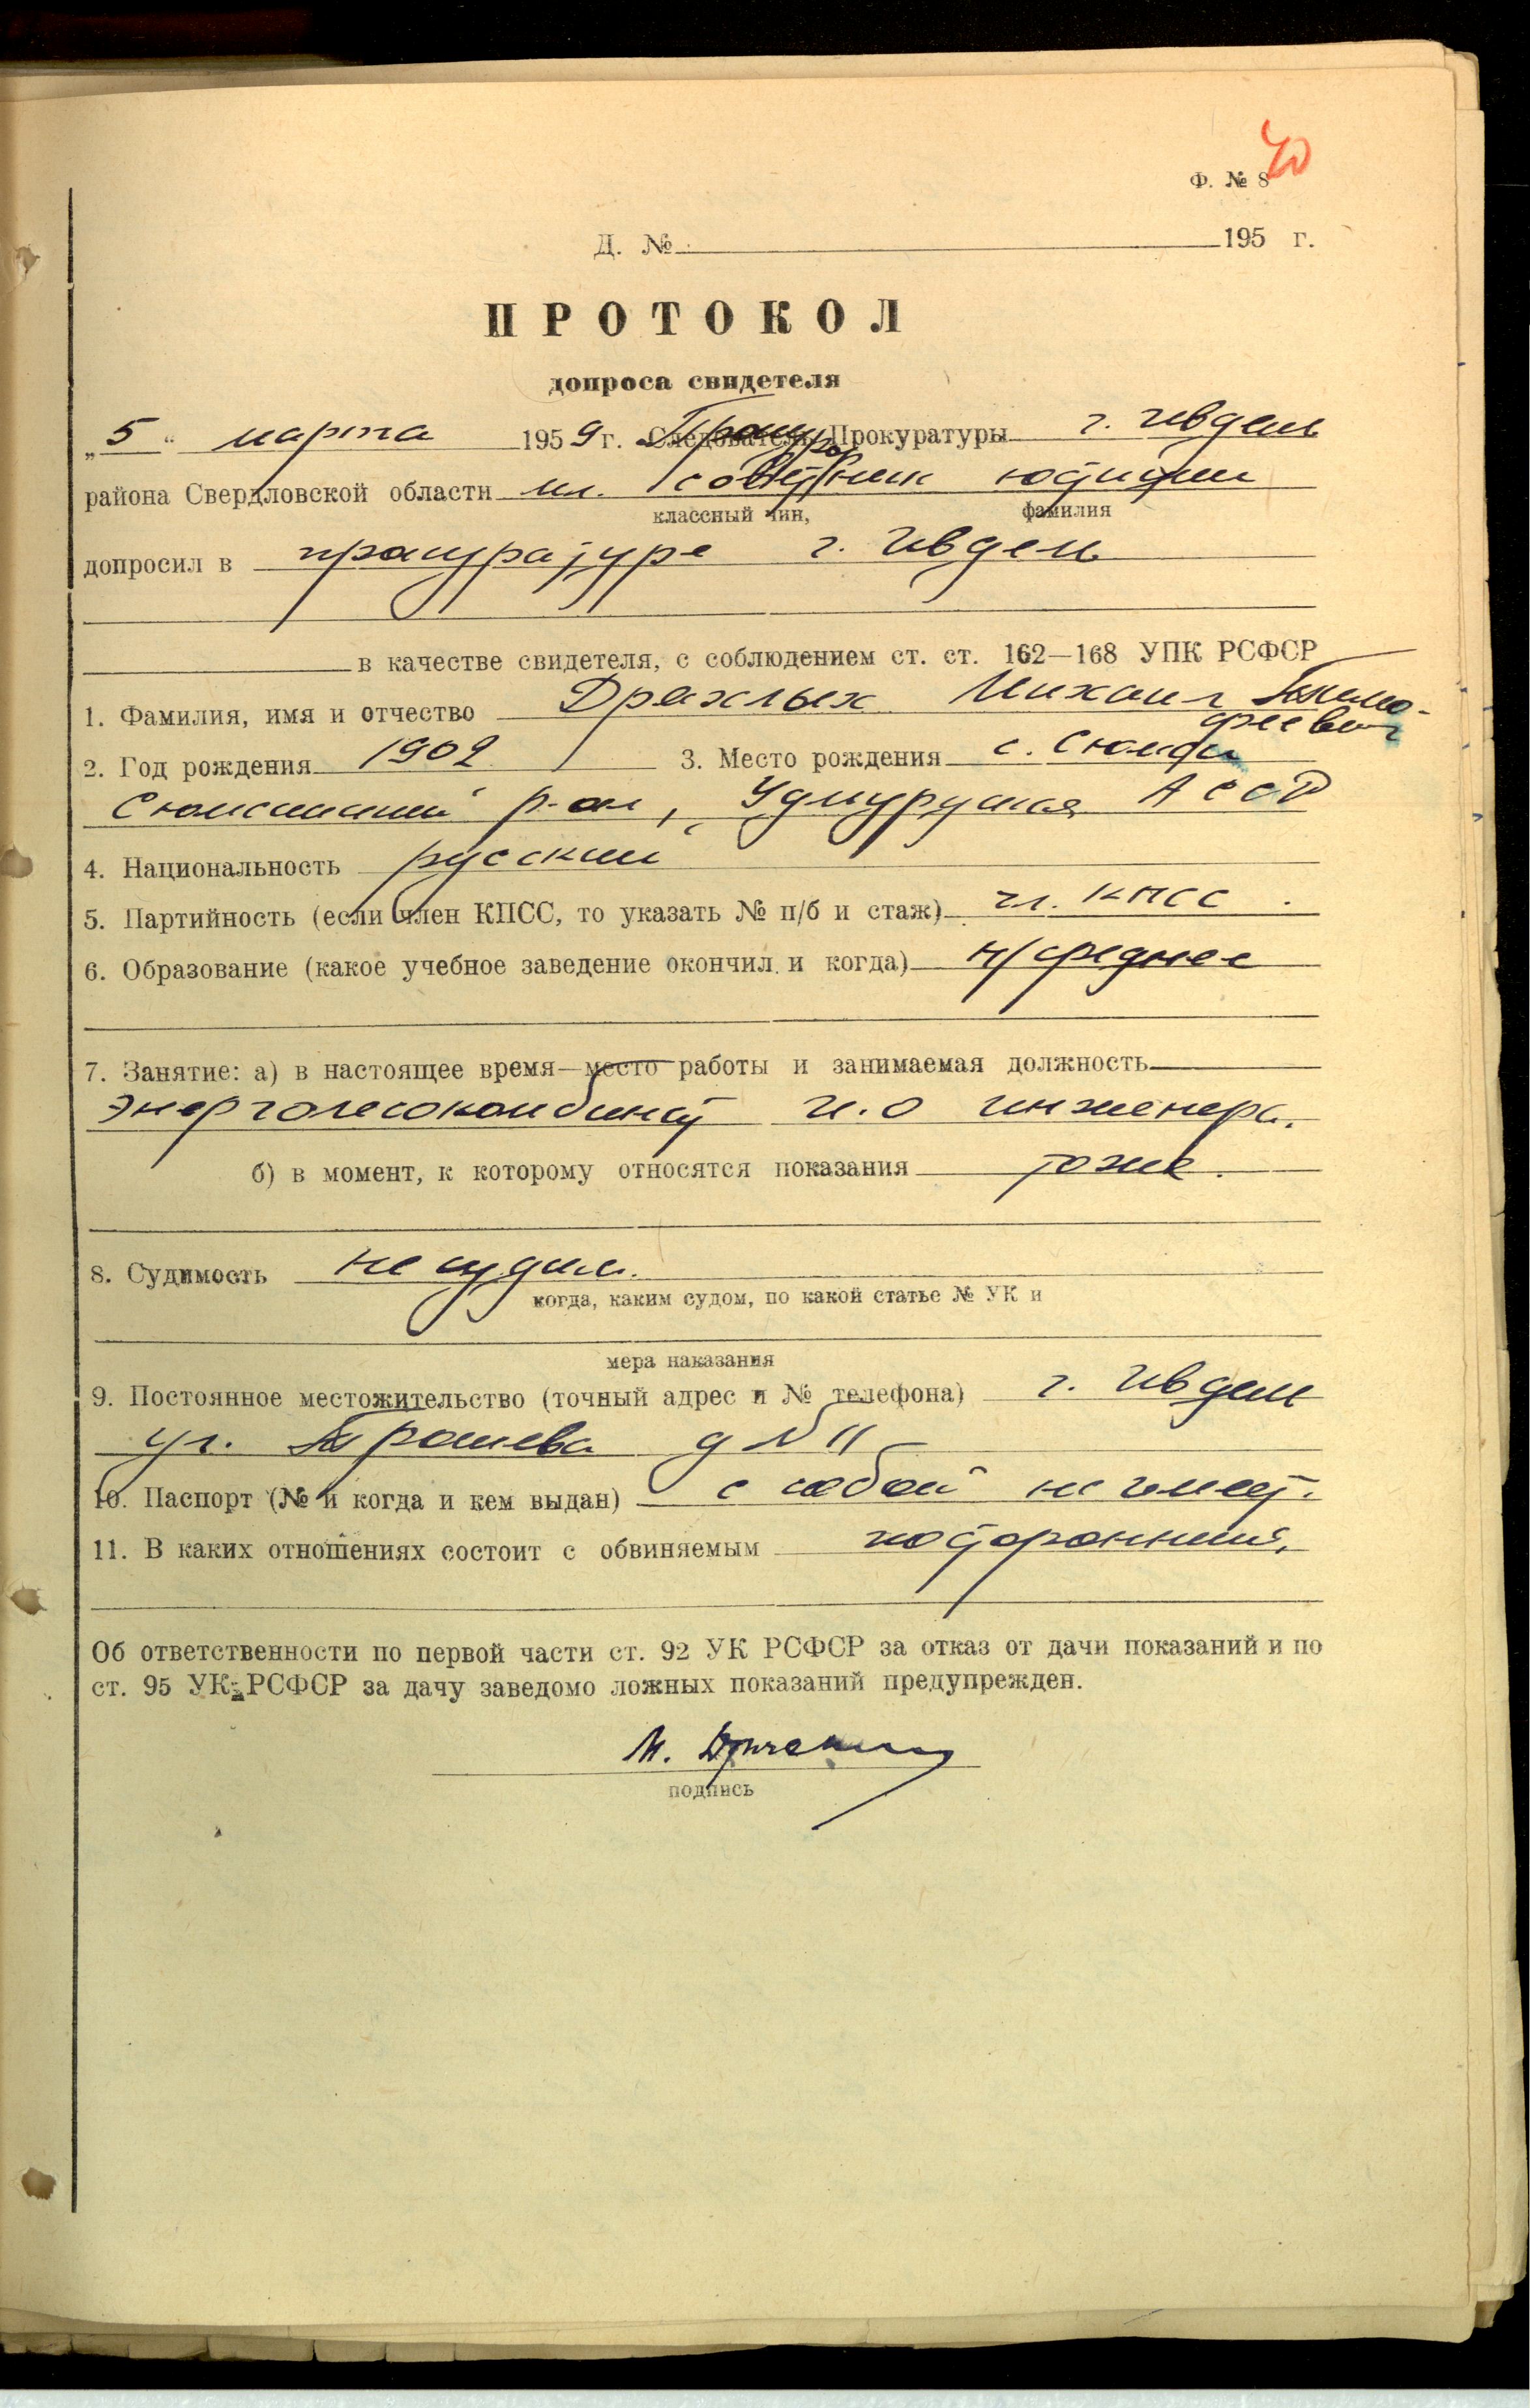 40
Ф. № 8
Д. № 195 г.
ПРОТОКОЛ
допроса свидетеля
„5“ марта 1959 г. Следователь Прокурор Прокуратуры г. Ивдель
района Свердловской области мл. советник юстиции
классный чин, фамилия
допросил в прокуратуре г. Ивдель
в качестве свидетеля, с соблюдением ст. ст. 162—168 УПК РСФСР
1. Фамилия, имя и отчество Дряхлых Михаил Тимо-
феевич
2. Год рождения 1902 3. Место рождения с. Сюмси
Сюмсинский р-он, Удмуртская АССР
4. Национальность русский
5. Партийность (если член КПСС, то указать № п/б и стаж) чл. КПСС.
6. Образование (какое учебное заведение окончил и когда) н/среднее
7. Занятие: а) в настоящее время—место работы и занимаемая должность
Энерголесокомбинат и.о инженера.
б) в момент, к которому относятся показания тоже.
8. Судимость не судим.
когда, каким судом, по какой статье № УК и
мера наказания
9. Постоянное местожительство (точный адрес и № телефона) г. Ивдель
ул. д № 11
10. Паспорт (№ и когда и кем выдан) с собой не имеет.
11. В каких отношениях состоит с обвиняемым посторонний.
Об ответственности по первой части ст. 92 УК РСФСР за отказ от дачи показаний и по
ст. 95 УК РСФСР за дачу заведомо ложных показаний предупрежден.
М.
подпись